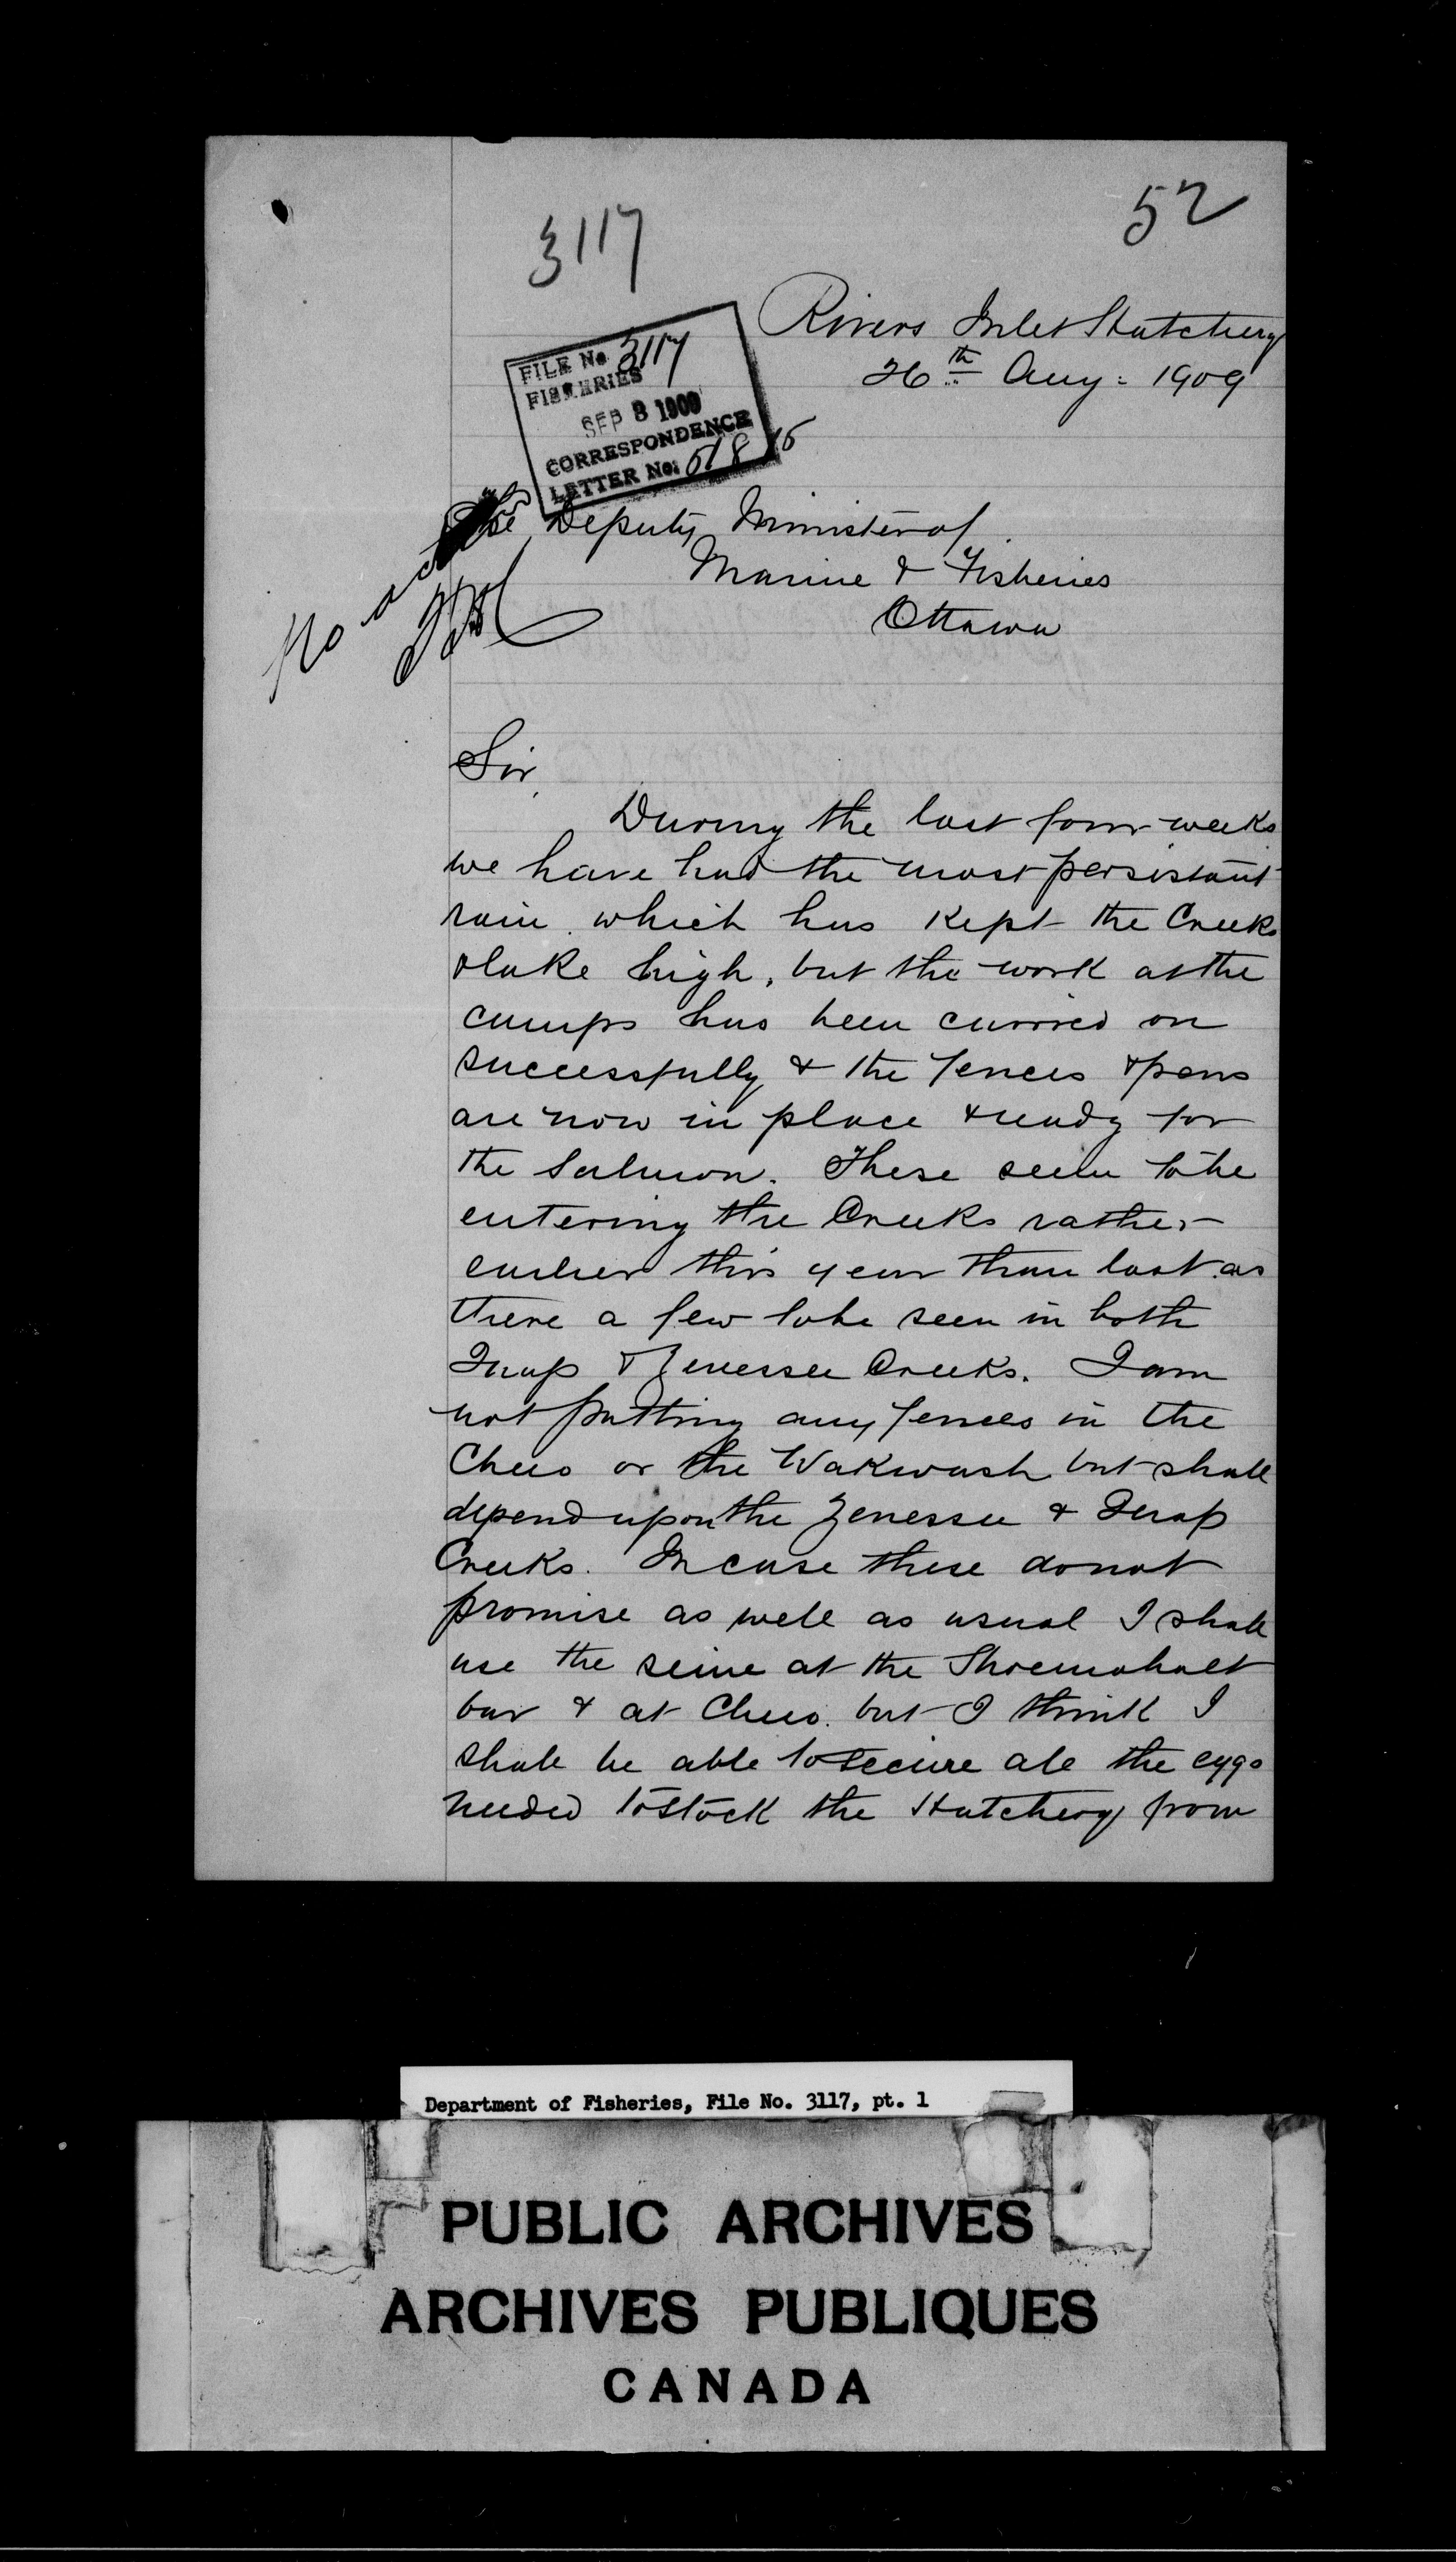 52
3117
Rivers Inlet Hatchery
26th Aug: 1909
FILE No 3117
FISHERIES
SEP 8 1909
CORRESPONDENCE
LETTER No:
The Deputy Minister of
Marine & Fisheries
Ottawa
No
Sir,
During the last four weeks
we have had the most persistant
rain which has kept the Creeks
& lake high, but the work at the
camps has been carried on
successfully & the fences & pens
are now in place & ready for
the Salmon. These seem to be
entering the Creeks rather
earlier this year than last as
there a few to be seen in both
& Genessee Creeks. I am
not putting any fences in the
Cheo or the Wakwash but shall
depend upon the Genessee &
Creeks. In case these do not
promise as well as usual I shall
use the seine at the Shoemahalt
bar & at Cheo. but I think I
shall be able to secure all the eggs
needed to stock the Hatchery from
Department of Fisheries, File No. 3117, pt. 1
PUBLIC ARCHIVES
ARCHIVES PUBLIQUES
CANADA